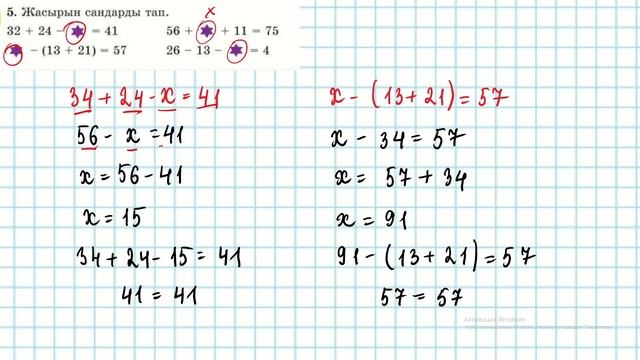 5. Жасырын сандарды тап.
x
32 + 24 − ✶ = 41
56 + ✶ + 11 = 75
✶ − (13 + 21) = 57
26 − 13 − ✶ = 4
34 + 24 - x = 41
56 - x = 41
x = 56 - 41
x = 15
34 + 24 - 15 = 41
41 = 41
x - (13 + 21) = 57
x - 34 = 57
x = 57 + 34
x = 91
91 - (13 + 21) = 57
57 = 57
Активация Windows